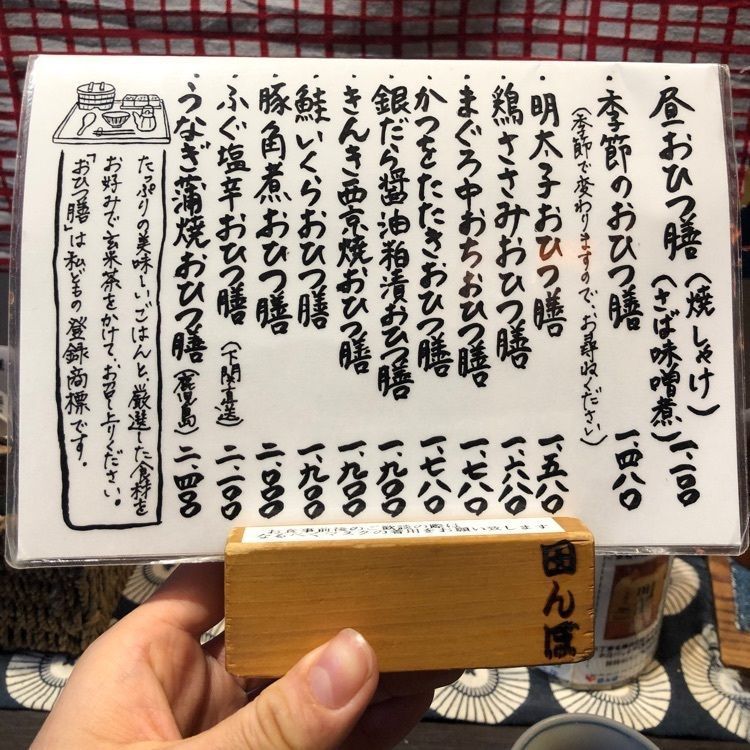 ・昼おひつ膳(焼しゃけ)
(さば味噌煮)一、一〇〇
・季節のおひつ膳 一、四八〇
(季節で変わりますので、お尋ねください)
・明太子おひつ膳 一、五八〇
・鶏ささみおひつ膳 一、六八〇
・まぐろ中おちおひつ膳 一、七八〇
・かつをたたきおひつ膳 一、七八〇
・銀だら醤油粕漬おひつ膳 一、九〇〇
・きんき西京焼おひつ膳 一、九〇〇
・鮭いくらおひつ膳 一、九〇〇
・豚角煮おひつ膳 二、〇〇〇
・ふぐ塩辛おひつ膳(下関直送) 二、一〇〇
・うなぎ蒲焼おひつ膳(鹿児島) 二、四〇〇
たっぷりの美味しいごはんと、厳選した食材を
お好みで玄米茶をかけて、お召し上りください。
「おひつ膳」は私どもの登録商標です。
お食事前後のご歓談の際は
なるべくマスクの着用をお願い致します
田んぼ